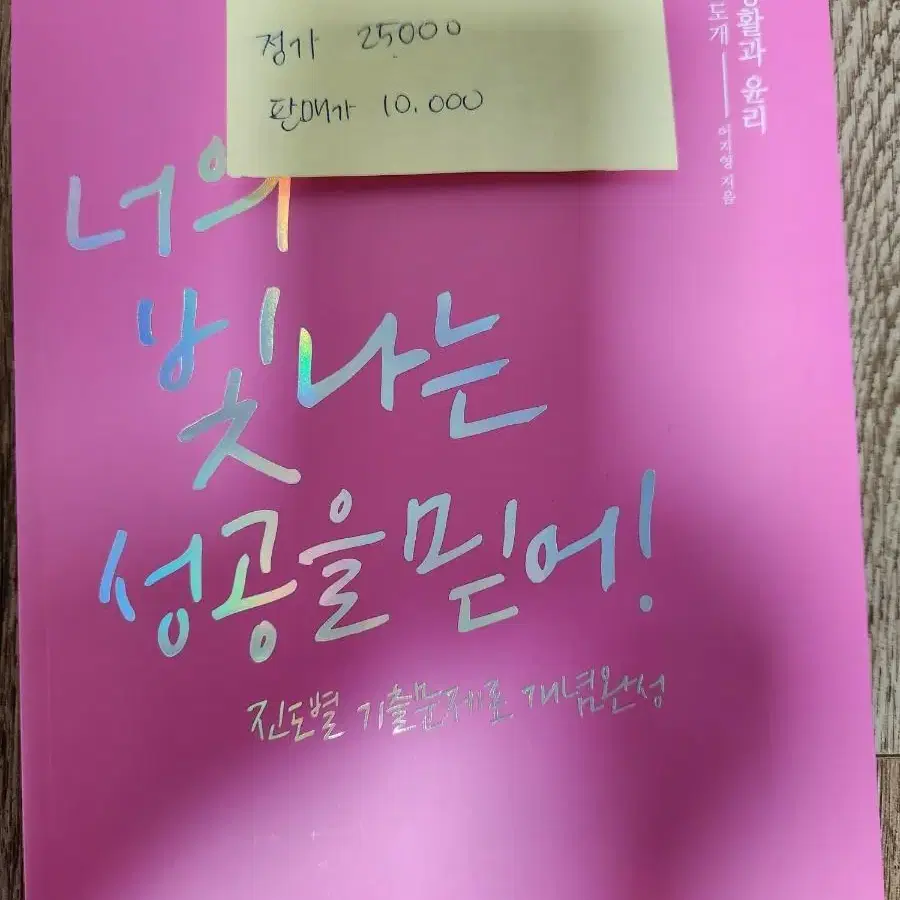 정가 25000
판매가 10.000
생활과 윤리
도개
이지영 지음
너의
빛나는
성공을 믿어!
진도별 기출문제로 개념완성